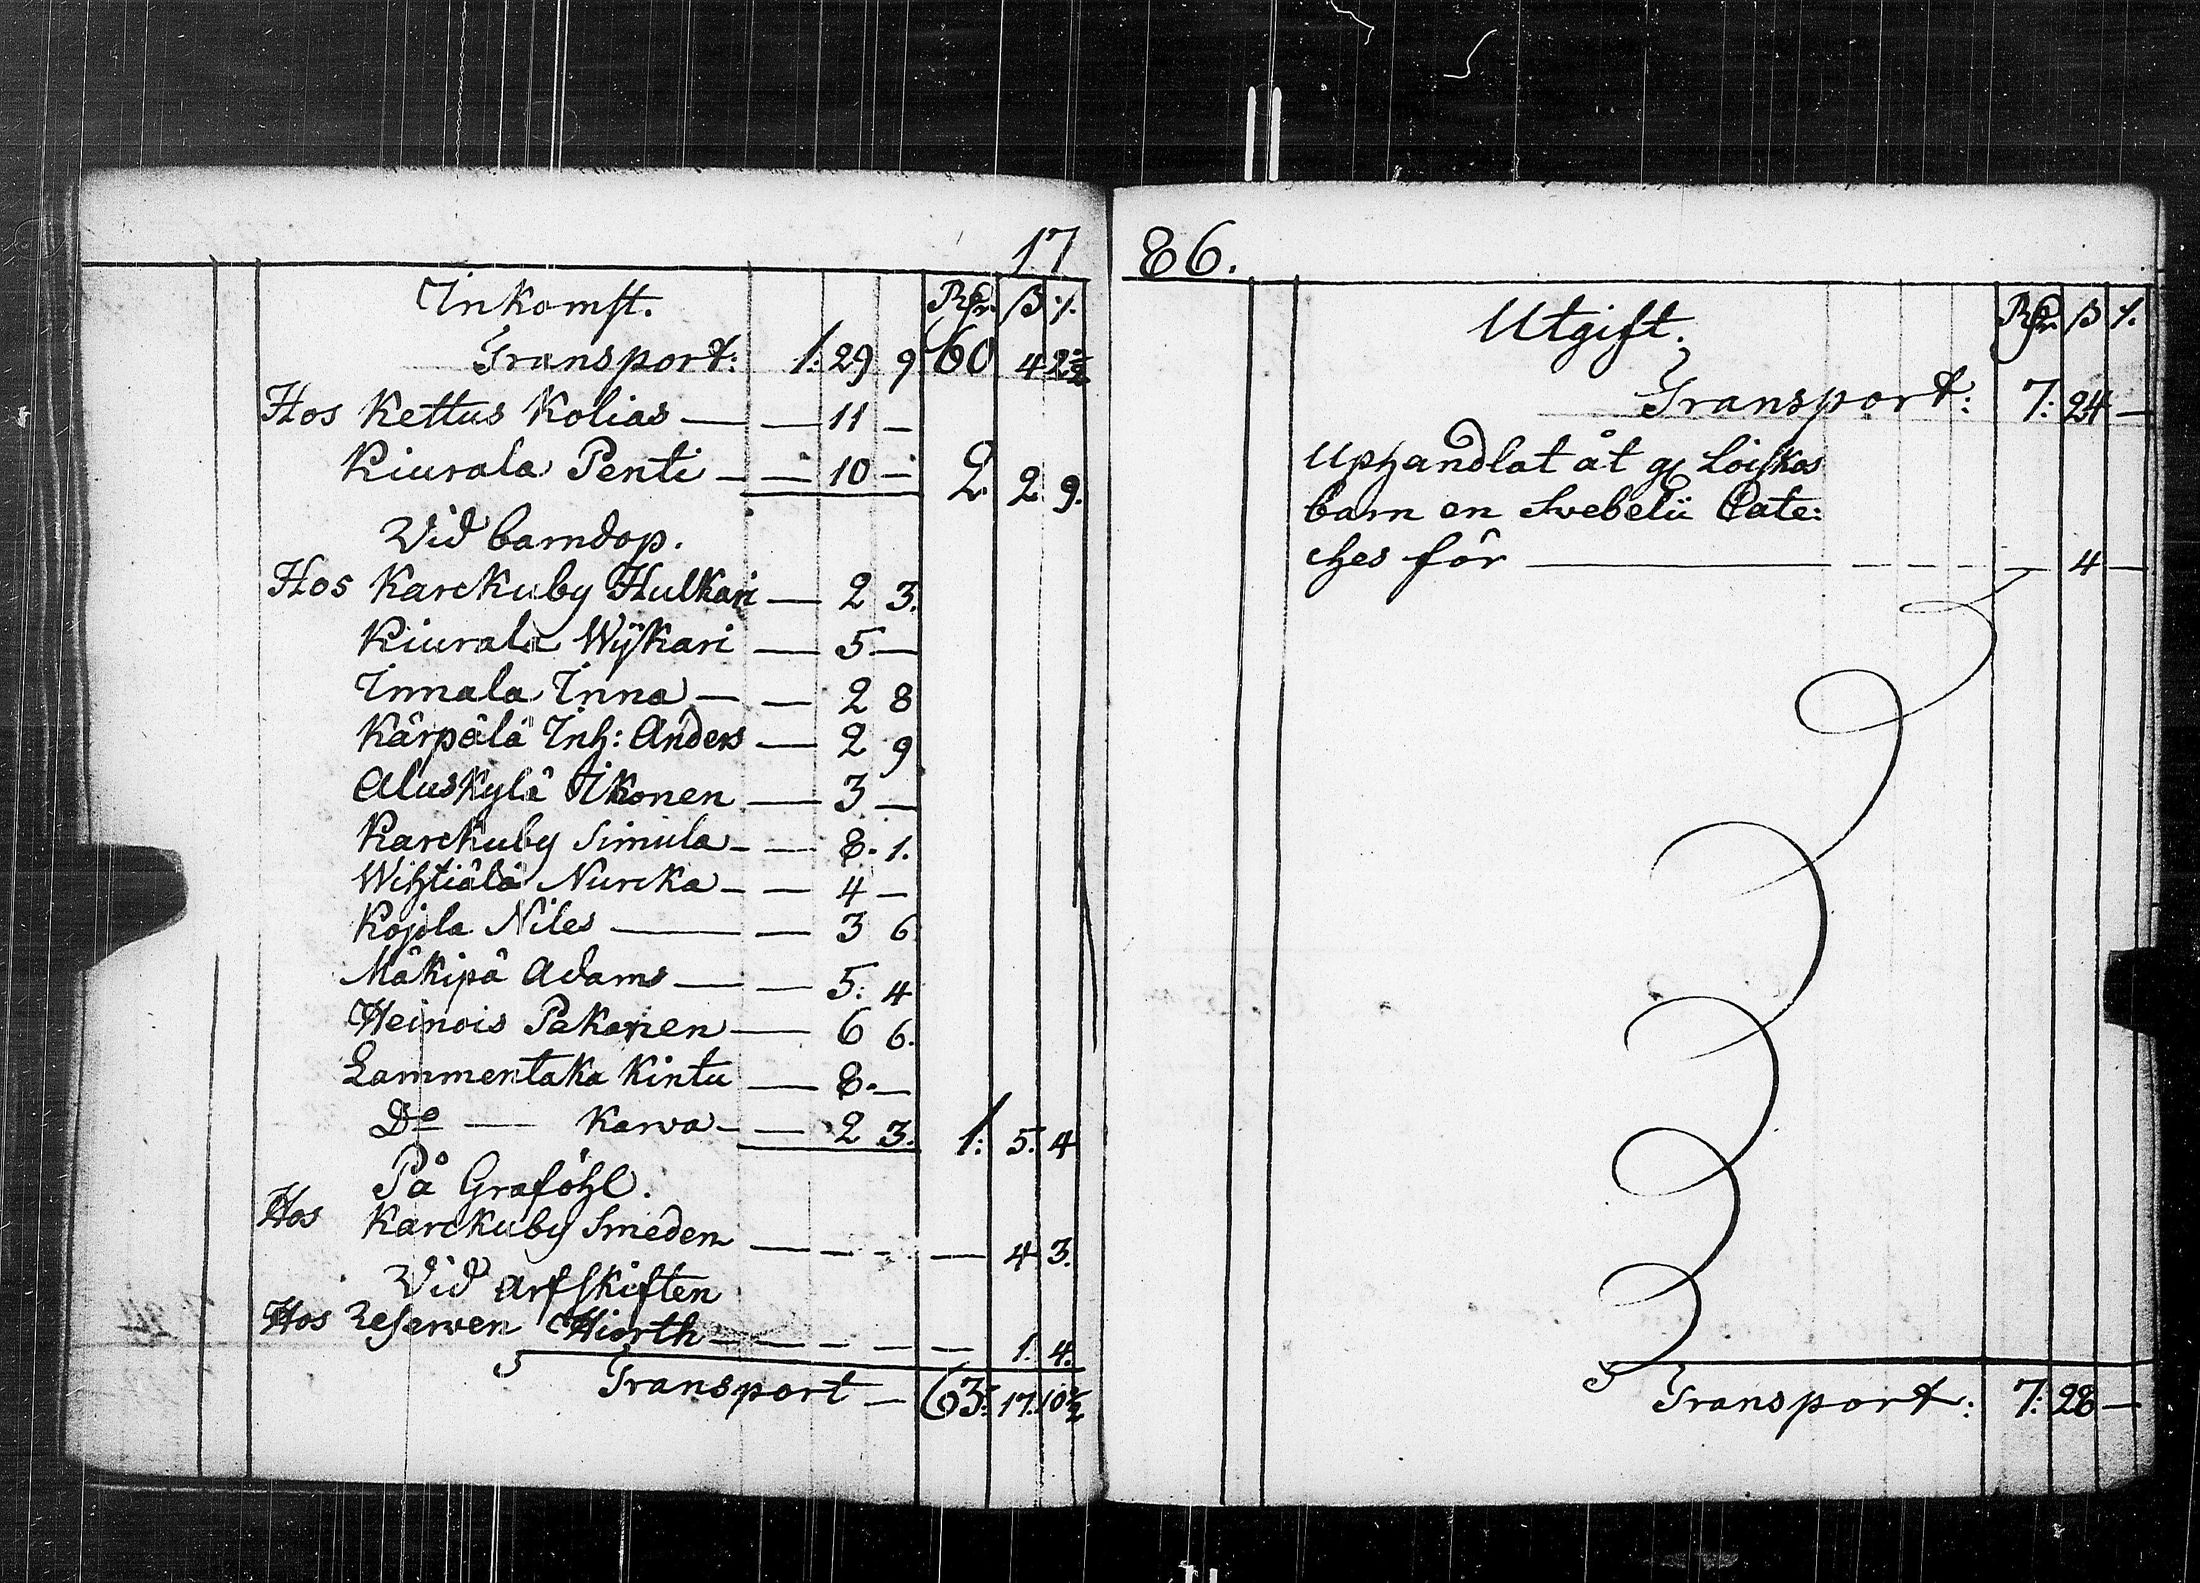 17
Inkomst. Rdr. ß ½.
Transport: 1: 29 9 60 4 2½
Hos Kettus Kolias — — 11 —
Kiurala Penti — — 10 — 2. 2 9.
Vid barndop.
Hos Karckuby Hulkari — 2 3.
Kiurala Wÿkari — 5 —
Innala Inna — — 2 8
Kärpälä Inh: Anders — 2 9
Aluskylä Ikonen — 3 —
Karckuby Simula — — 8. 1.
Wihtiälä Nurcka — — 4 —
Kojola Niles — — 3 6
Mäkipä Adams — — 5: 4
Heinois Pakanen — 6 6.
Lammentaka Kintu — 8. —
Do — Karva — — 2 3. 1: 5. 4
På Graföhl.
Hos Karckuby Smeden — — — — 4 3.
Vid arfskiften
Hos Reserven Hiorth — — — — 1. 4.
Transport — 63: 17. 10½
86.
Utgift. Rdr. ß ½.
Transport: 7: 24 —
Uphandlat åt Loiskas
barn en Svebelii Cate:
ches för — — — — 4 —
Transport: 7: 28 —